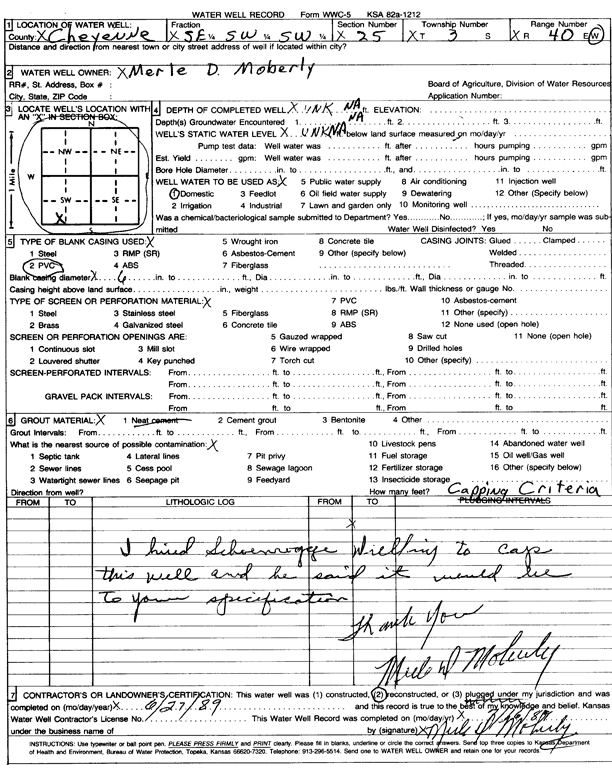 WATER WELL RECORD Form WWC-5 KSA 82a-1212
1 LOCATION OF WATER WELL: Fraction Section Number Township Number Range Number
County: X Cheyenne X SE ¼ SW ¼ SW ¼ X 25 X T 3 S X R 40 E/W
Distance and direction from nearest town or city street address of well if located within city?
2 WATER WELL OWNER: X Merle D. Moberly
RR#, St. Address, Box # : Board of Agriculture, Division of Water Resources
City, State, ZIP Code : Application Number:
3 LOCATE WELL'S LOCATION WITH AN "X" IN SECTION BOX:
N
NW NE
W E
SW SE
X
S
1 Mile
4 DEPTH OF COMPLETED WELL X UNK NA ft. ELEVATION:
Depth(s) Groundwater Encountered 1. NA ft. 2. ft. 3. ft.
WELL'S STATIC WATER LEVEL X UNK NA ft. below land surface measured on mo/day/yr
Pump test data: Well water was ft. after hours pumping gpm
Est. Yield gpm: Well water was ft. after hours pumping gpm
Bore Hole Diameter in. to ft., and in. to ft.
WELL WATER TO BE USED AS: X 5 Public water supply 8 Air conditioning 11 Injection well
1 Domestic 3 Feedlot 6 Oil field water supply 9 Dewatering 12 Other (Specify below)
2 Irrigation 4 Industrial 7 Lawn and garden only 10 Monitoring well
Was a chemical/bacteriological sample submitted to Department? Yes No ; If yes, mo/day/yr sample was sub-
mitted Water Well Disinfected? Yes No
5 TYPE OF BLANK CASING USED: X 5 Wrought iron 8 Concrete tile CASING JOINTS: Glued Clamped
1 Steel 3 RMP (SR) 6 Asbestos-Cement 9 Other (specify below) Welded
2 PVC 4 ABS 7 Fiberglass Threaded
Blank casing diameter X 6 in. to ft., Dia in. to ft., Dia in. to ft.
Casing height above land surface in., weight lbs./ft. Wall thickness or gauge No.
TYPE OF SCREEN OR PERFORATION MATERIAL: X 7 PVC 10 Asbestos-cement
1 Steel 3 Stainless steel 5 Fiberglass 8 RMP (SR) 11 Other (specify)
2 Brass 4 Galvanized steel 6 Concrete tile 9 ABS 12 None used (open hole)
SCREEN OR PERFORATION OPENINGS ARE: 5 Gauzed wrapped 8 Saw cut 11 None (open hole)
1 Continuous slot 3 Mill slot 6 Wire wrapped 9 Drilled holes
2 Louvered shutter 4 Key punched 7 Torch cut 10 Other (specify)
SCREEN-PERFORATED INTERVALS: From ft. to ft., From ft. to ft.
From ft. to ft., From ft. to ft.
GRAVEL PACK INTERVALS: From ft. to ft., From ft. to ft.
From ft. to ft., From ft. to ft.
6 GROUT MATERIAL: X 1 Neat cement 2 Cement grout 3 Bentonite 4 Other
Grout Intervals: From ft. to ft., From ft. to ft., From ft. to ft.
What is the nearest source of possible contamination: X 10 Livestock pens 14 Abandoned water well
1 Septic tank 4 Lateral lines 7 Pit privy 11 Fuel storage 15 Oil well/Gas well
2 Sewer lines 5 Cess pool 8 Sewage lagoon 12 Fertilizer storage 16 Other (specify below)
3 Watertight sewer lines 6 Seepage pit 9 Feedyard 13 Insecticide storage
Direction from well? How many feet? Capping Criteria
FROM TO LITHOLOGIC LOG FROM TO PLUGGING INTERVALS
X
I hired Schoenrogge Drilling to cap
this well and he said it would be
to your specification
Thank You
Merle D Moberly
7 CONTRACTOR'S OR LANDOWNER'S CERTIFICATION: This water well was (1) constructed, (2) reconstructed, or (3) plugged under my jurisdiction and was
completed on (mo/day/year) X 6/27/89 and this record is true to the best of my knowledge and belief. Kansas
Water Well Contractor's License No. This Water Well Record was completed on (mo/day/yr) X
under the business name of by (signature) X Merle D Moberly
INSTRUCTIONS: Use typewriter or ball point pen. PLEASE PRESS FIRMLY and PRINT clearly. Please fill in blanks, underline or circle the correct answers. Send top three copies to Kansas Department
of Health and Environment, Bureau of Water Protection, Topeka, Kansas 66620-7320. Telephone: 913-296-5514. Send one to WATER WELL OWNER and retain one for your records.